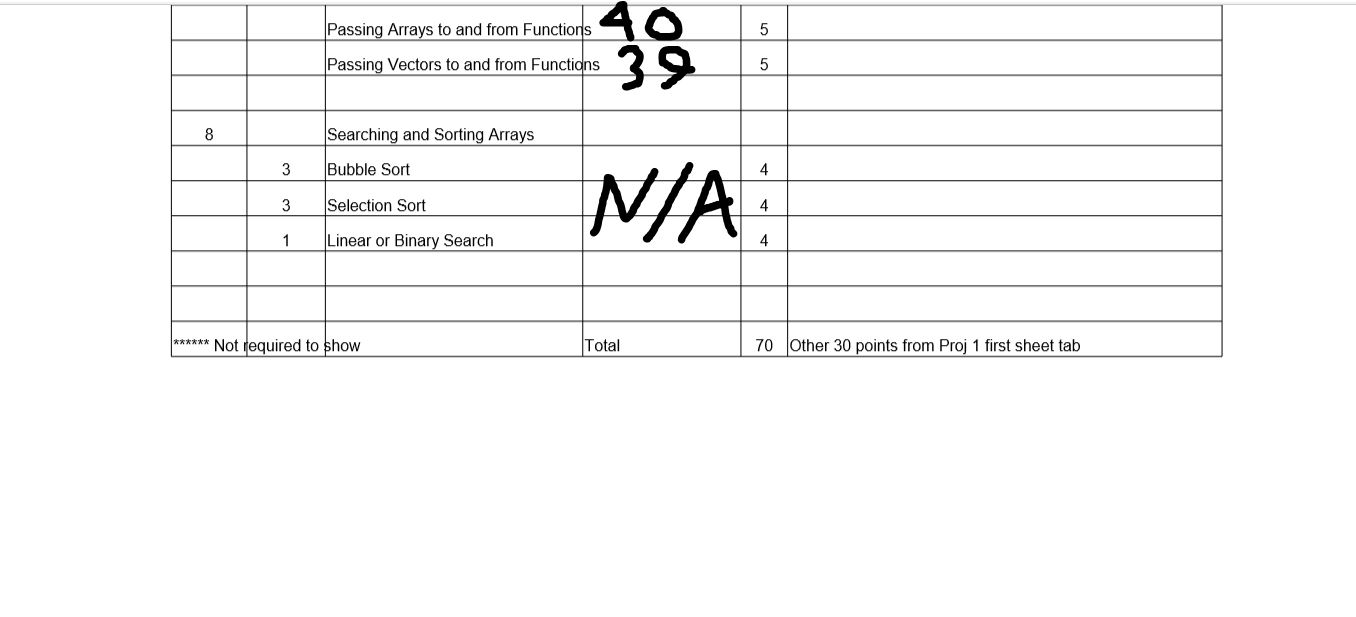 Passing Arrays to and from Functions 40 5
Passing Vectors to and from Functions 39 5
8 Searching and Sorting Arrays
3 Bubble Sort 4
3 Selection Sort N/A 4
1 Linear or Binary Search 4
****** Not required to show Total 70 Other 30 points from Proj 1 first sheet tab